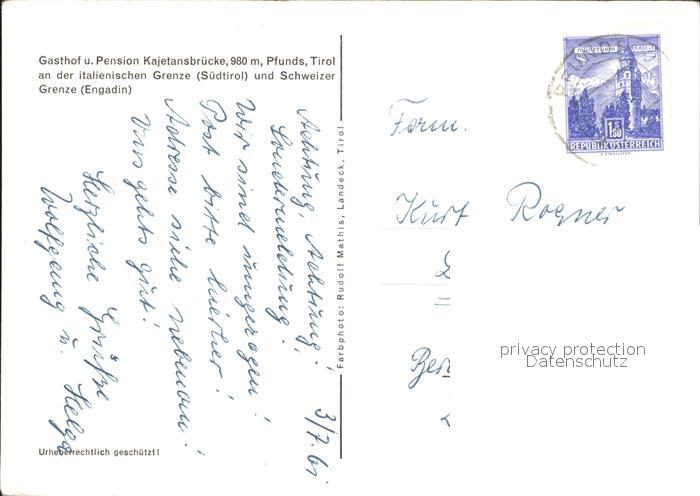 Gasthof u. Pension Kajetansbrücke, 980 m, Pfunds, Tirol
an der italienischen Grenze (Südtirol) und Schweizer
Grenze (Engadin)
3/7. 61
Achtung, Achtung!
Sondermeldung!
Wir sind umgezogen!
Post bitte hierher!
Adresse siehe nebenan!
Uns gehts gut!
Herzliche Grüße
Wolfgang u. Helga
Urheberrechtlich geschützt!
Farbphoto: Rudolf Mathis, Landeck, Tirol
MÜNZTURM HALL i.T.
1.50
REPUBLIK ÖSTERREICH
Fam.
Kurt Rogner
Ber
privacy protection
Datenschutz